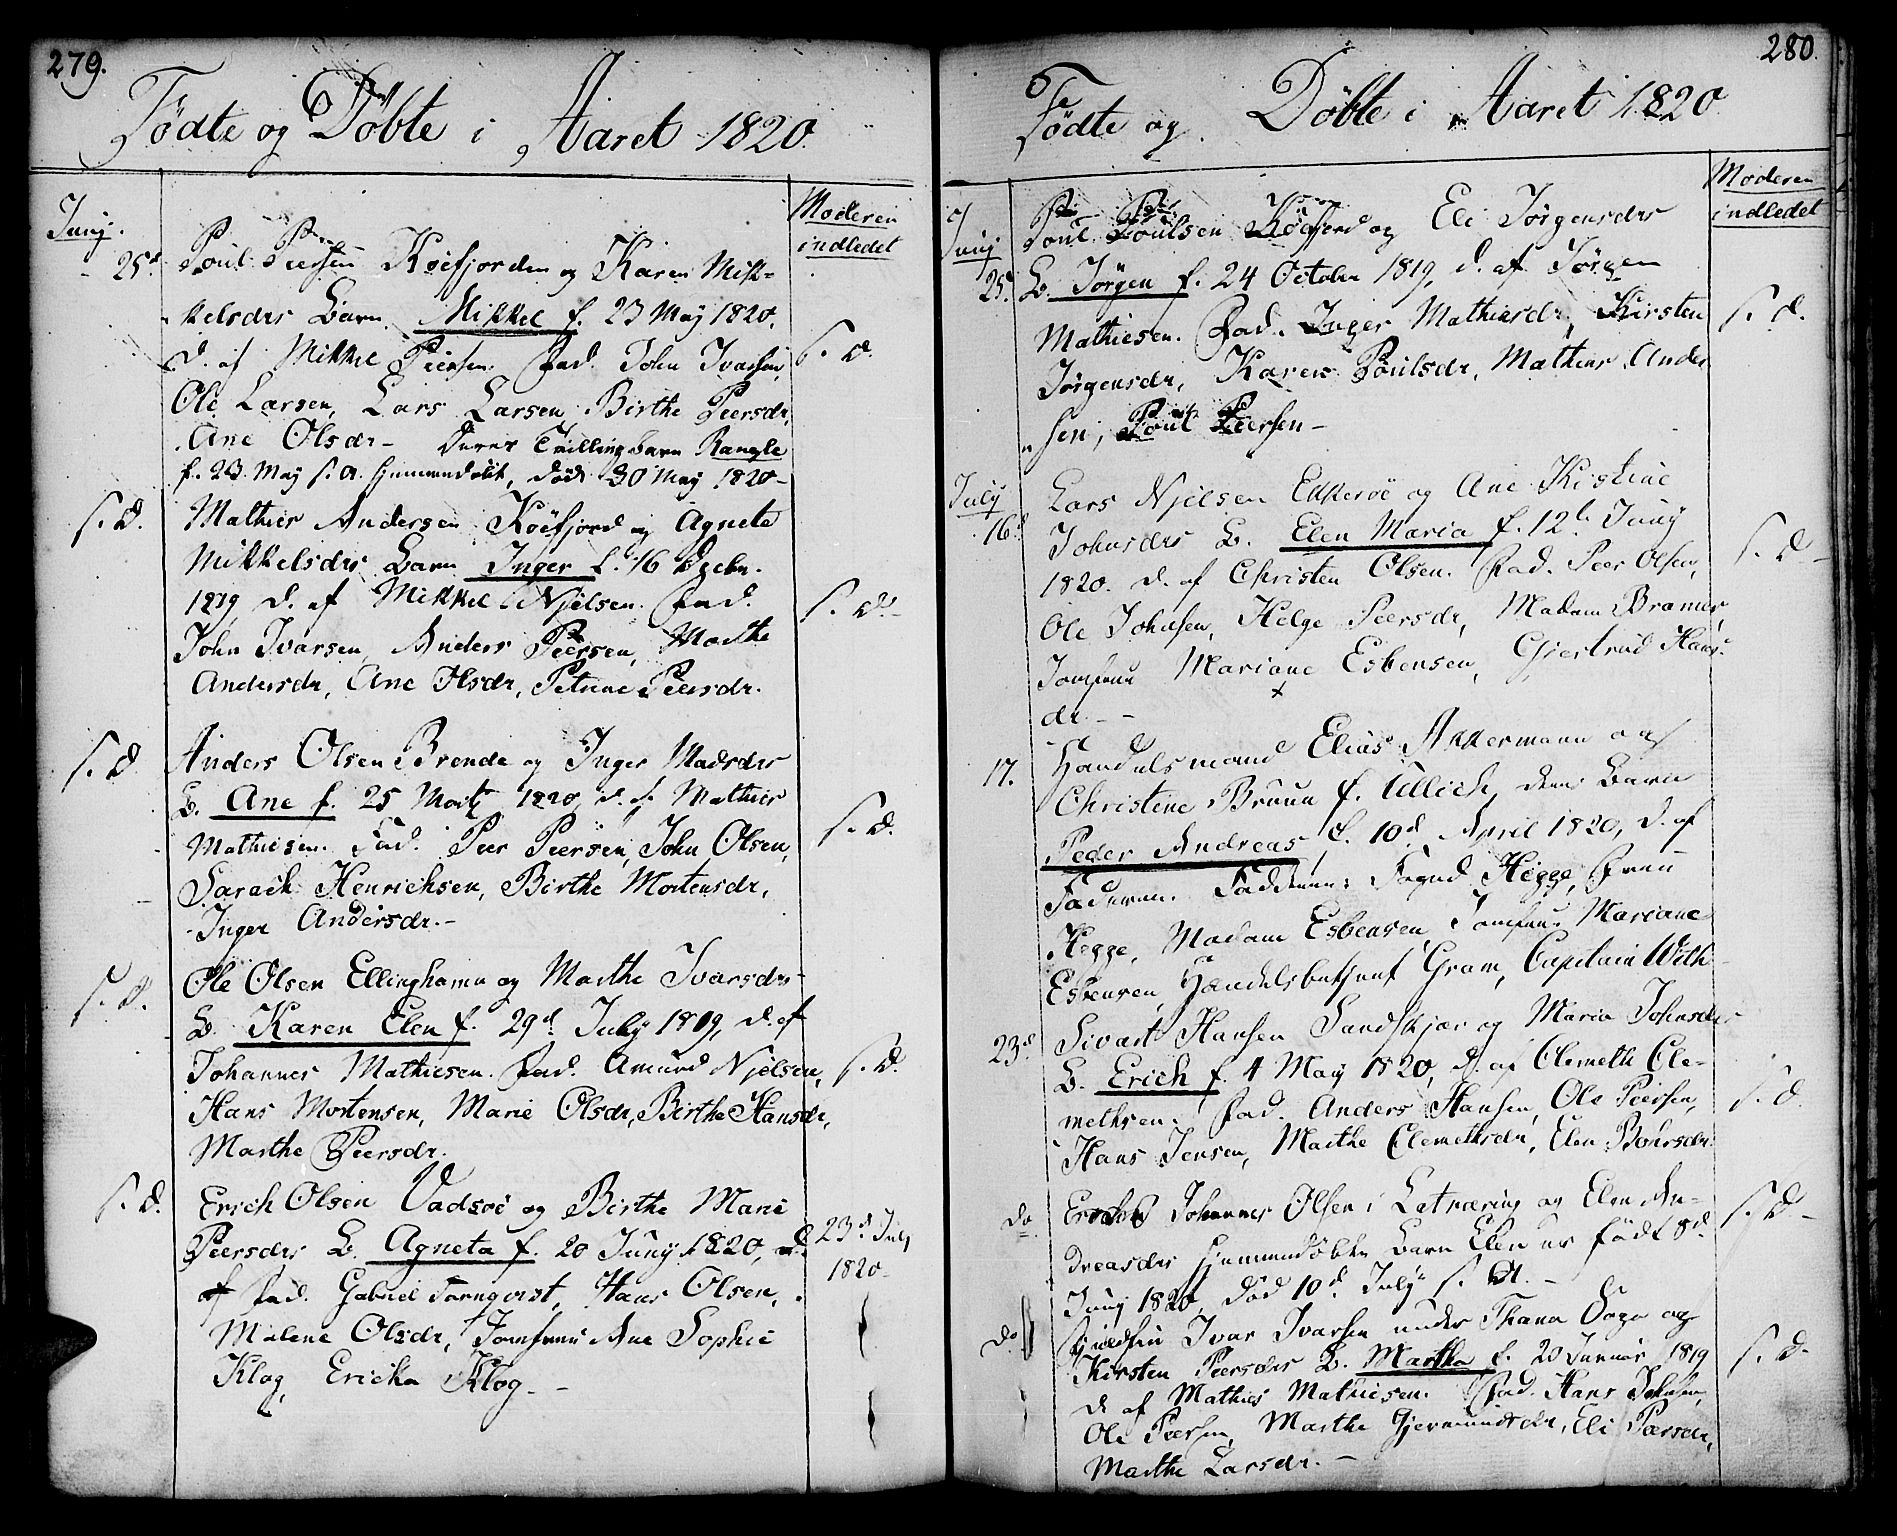 279.
Fødte og Døbte i Aaret 1820.
Moderen
indledet
Juny.
25d Poul Peersen Koefjorden og Karen Mik-
kelsdrs Barn Mikkel f. 23 May 1820.
D. af Mikkel Peersen. Fad. John Ivarsen, s. D.
Ole Larsen, Lars Larsen, Birthe Peersdr,
Ane Olsdr - Deres Tvillingbarn Rangle
f. 23 May s. A. hjemmedøbt, død 30 May 1820 -
s. D. Mathies Andersen Koefjord og Agnete
Mikkelsdrs Barn Inger f. 16 Dzebr.
1819 D. af Mikkel Njelsen. Fad. s. D.
John Ivarsen, Anders Peersen, Marthe
Andersdr, Ane Olsdr, Petrine Peersdr.
s. D. Anders Olsen Brende og Inger Madsdrs
B. Ane f. 25 Martz 1820, d. af Mathies
Mathiesen. Fad. Peer Peersen, John Olsen, s. D.
Sarach Henrichsen, Birthe Mortensdr,
Inger Andersdr. -
s. D. Ole Olsen Ellinghamn og Marthe Ivarsdrs
B. Karen Elen f. 29d July 1819, D. af
Johannes Mathiesen. Fad. Amund Njelsen, s. D.
Hans Mortensen, Marie Olsdr, Birthe Hansdr,
Marthe Peersdr.
s. D. Erich Olsen Vadsøe og Birthe Marie
Peersdrs B. Agneta f. 20 Juny 1820, 23d July
af Fad. Gabriel Tornqvist, Hans Olsen, 1820
Malene Olsdr, Jomfrue Ane Sophie
Klog, Ericka Klog. -
280
Fødte og Døbte i Aaret 1820
Moderen
indledet
Juny Poul Poulsen Koefjord og Eli Jørgensdrs
25d B. Jørgen f. 24 October 1819, d. af Jørgen
Mathiesen. Fad. Inger Mathiesdr, Kirsten s. D.
Jørgensdr, Karen Poulsdr, Mathies Ander
sen, Poul Peersen -
July Lars Njelsen Ekkerøe og Ane Kistine
16d Johnsdrs B. Elen Maria f. 12t Juny
1820. D. af Christen Olsen. Fad. Peer Olsen, s. D -
Ole Johnsen, Helge Peersdr, Madam Bramer,
Jomfrue Mariane Esbensen, Gjertrud Hans-
dr. -
17. Handelsmand Elias Akkermann og
Christine Bruun f. Ullich, deres Barn
Peder Andreas f. 10d April 1820, D. af
Faderen. Fadderne: Fogud Hegge, Fruu
Hegge, Madam Esbensen, Jomfrue Mariane
Esbensen, Handelsbetjent Gram, Capitain With
23d Sivart Hansen Sandskjær og Maria Johnsdrs
B. Erich f. 4 May 1820, D. af Clemeth Cle-
methsen. Fad. Anders Hansen, Ole Peersen, s. D.
Hans Jensen, Marthe Clemethsdr, Elen
do Johannes Olsen i og Elen An- s. D. -
dreasdrs hjemmedøbte Barn Elen er født 8d
Juny 1820, død 10d July s. A. -
Do Ivar Ivarsen under Thana Sogn og
Kirsten Peersdrs B. Martha f. 20 Januar 1819 s. D.
D. af Mathies Mathiesen. Fad. Hans Johnsen,
Ole Peersen, Marthe Gjermundsdr, Eli Peersdr,
Marthe Larsdr. -